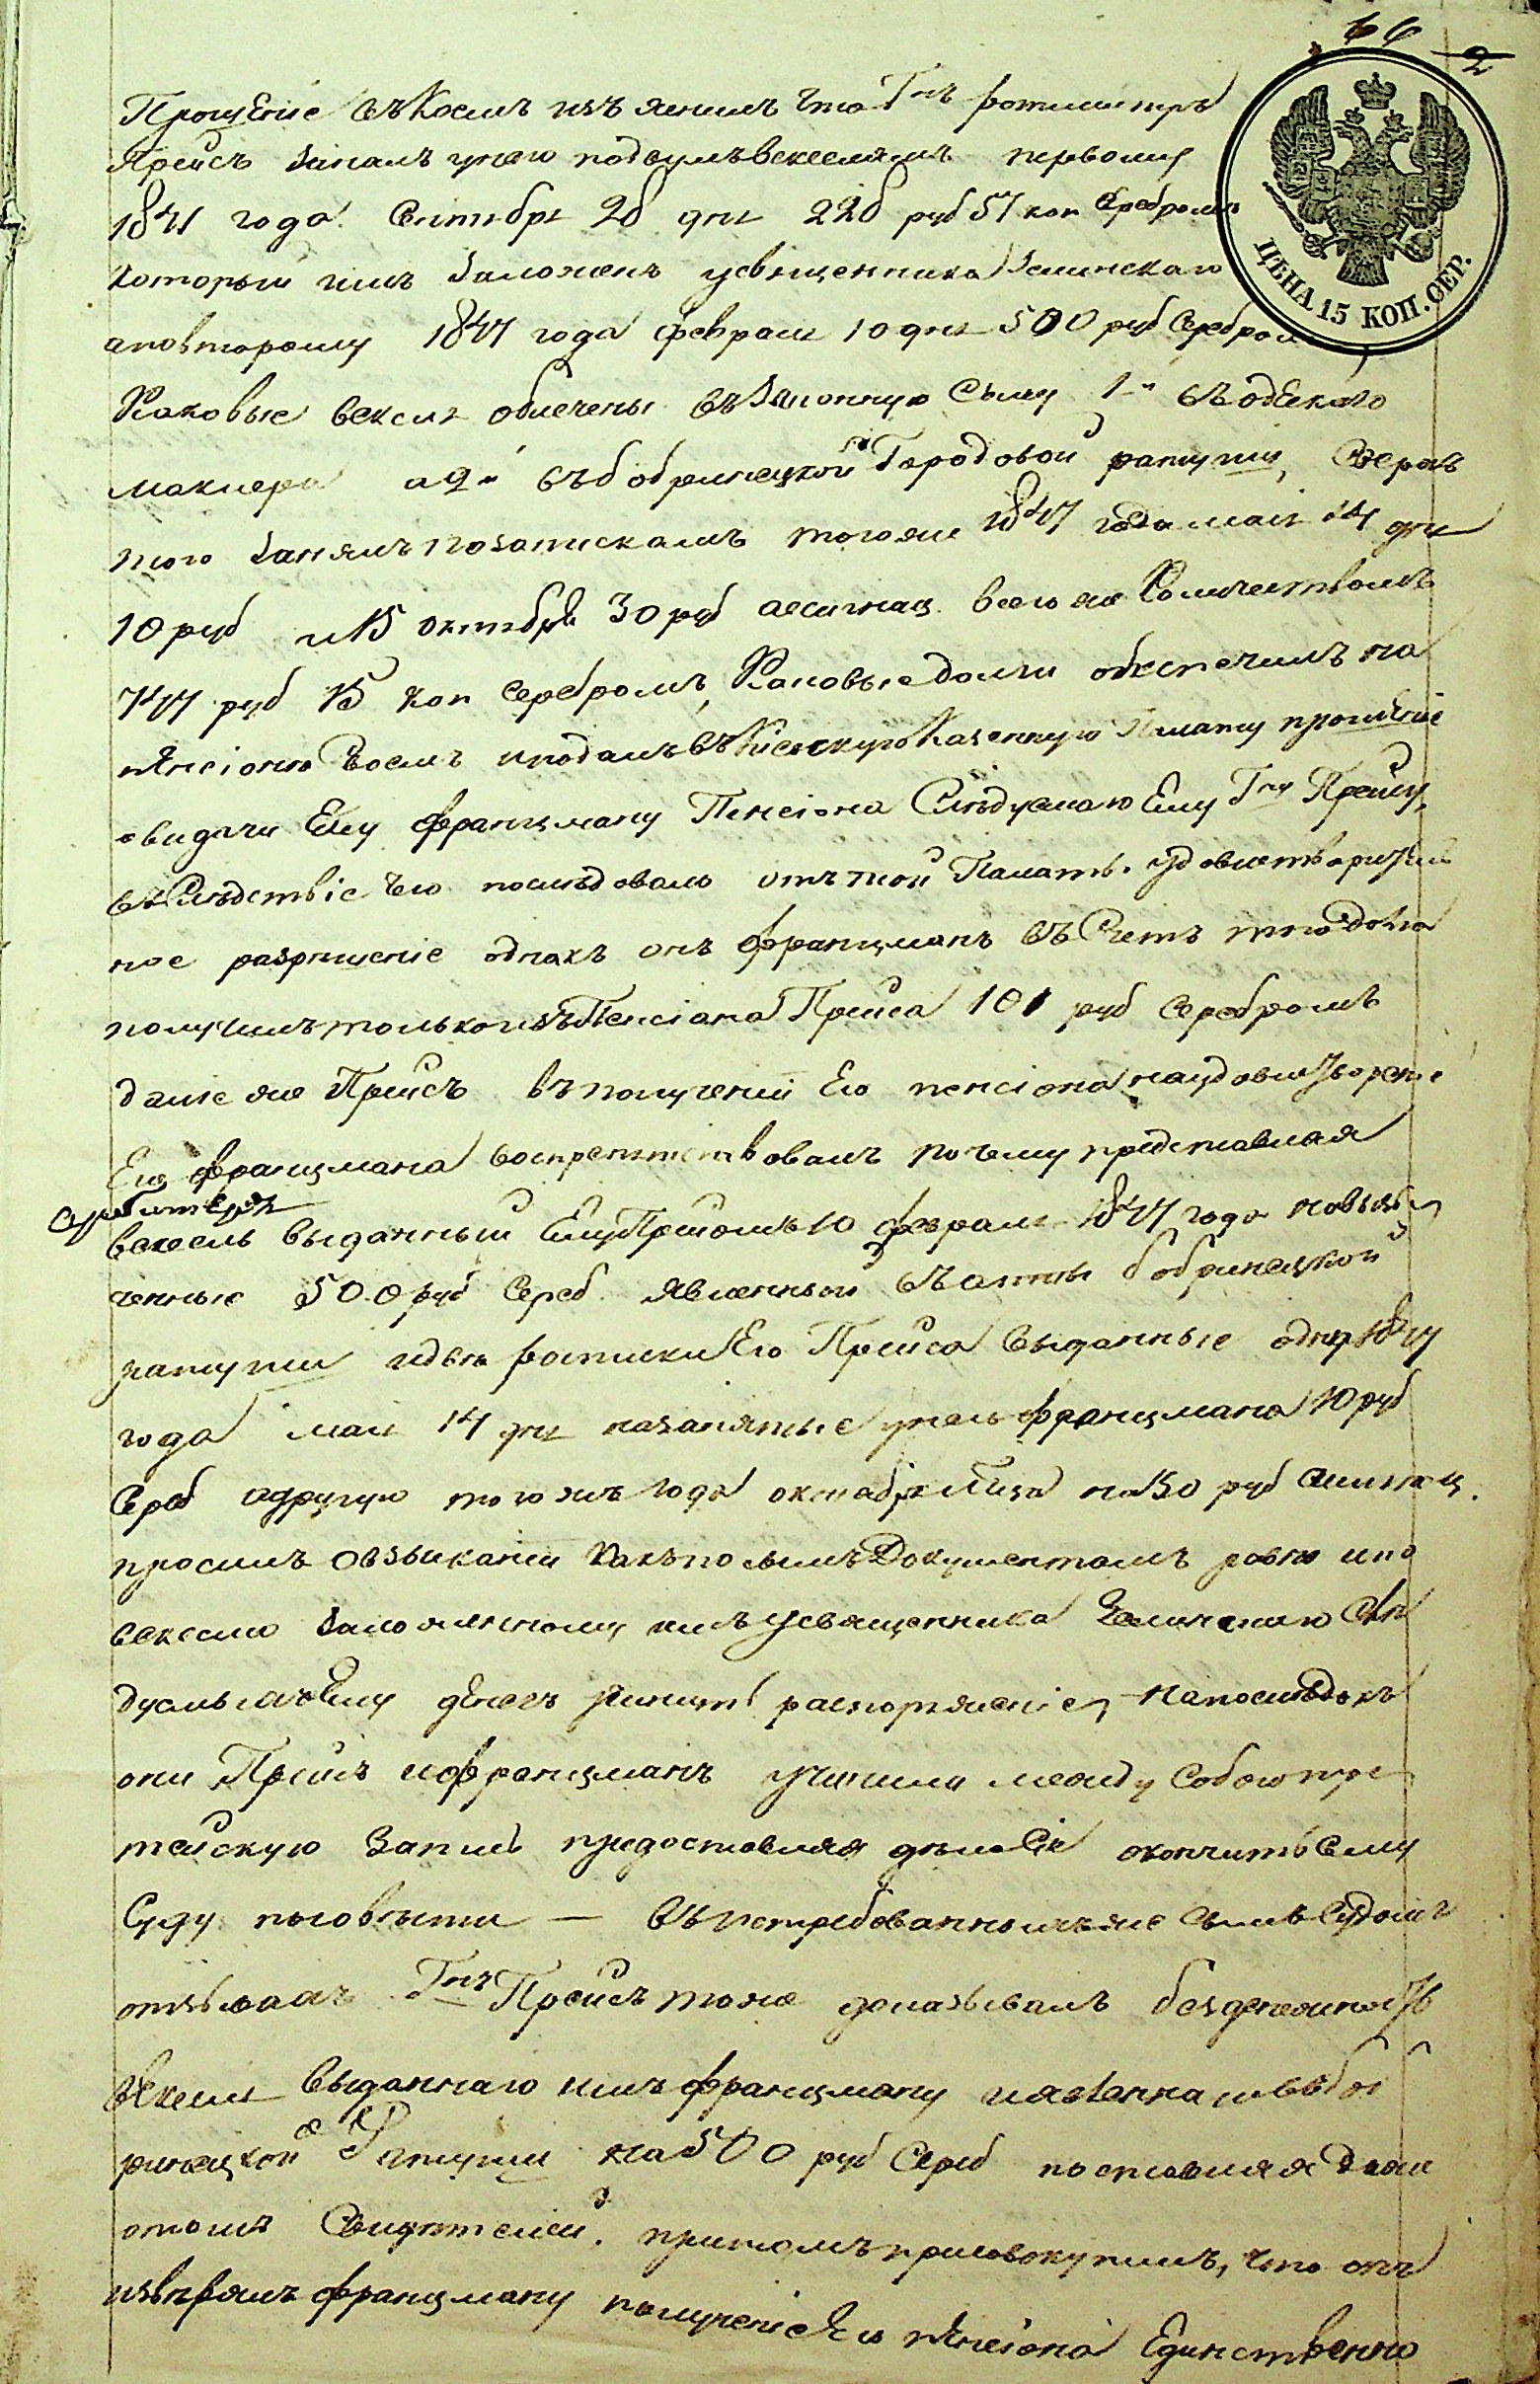 66
2
ЦѢНА 15 КОП. СЕР.
Прошеніе въ коемъ изъяснилъ что Гнъ ротмистръ
Прейсъ занялъ у него по двумъ векселямъ первому
1841 года Сентября 26 дня 226 руб 57 коп серебромъ
который имъ заложенъ у священника Зелинскаго
а по второму 1847 года февраля 10 дня 500 руб серебромъ
каковые векселя облечены въ законную силу 1й въ одескаго
маклера а 2й въ бобринецкой Городовой ратуши, сверхъ
того занялъ по запискамъ того же 1847 года мая 14 дня
10 руб и 15 октября 30 руб ассигнац. всего же количествомъ
747 руб 15 коп серебромъ, каковые долги обеспечилъ на
пенсіонѣ своемъ и подалъ въ Кіевскую Казенную Палату прошеніе
о выдачи ему Францману Пенсіона слѣдуемаго ему Гну Прейсу,
въ слѣдствіе чего послѣдовало отъ той Палаты удовлетворитель
ное разрешеніе однакъ онъ Францманъ въ счетъ того долга
получилъ только изъ Пенсіона Прейса 101 руб серебромъ
далѣе же Прейсъ въ полученіи его пенсіона на удовлетвореніе
его Францмана воспрепятствовалъ почему представляя
вексель выданный ему Прейсомъ 10 февраля 1847 года
ченные 500 руб сереб. явленный въ бобринецкой
ратуши и двѣ росписки его Прейса выданные одну 1847
года мая 14 дня на занятые у него Францмана 10 руб
сереб а другую того жъ года октября мца на 30 руб ассигнац.
просилъ о взысканіи какъ по симъ документамъ равно и по
векселю заложенному имъ у священника Зелинскаго слѣ
дуемыхъ ему денегъ учинить распоряженіе, на послѣдокъ
они Прейсъ и Францманъ учинили между собою тре
тейскую запись предоставляя дѣло сіе окончить сему
Суду по совѣсти — въ истребованномъ же симъ судомъ
отзывахъ Гнъ Прейсъ тоже доказывалъ безденежность
векселя выданнаго имъ Францману и явленнаго въ боб
ринецкой Ратуши на 500 руб сереб поставляя даже
о томъ свидѣтелей, притомъ присовокупилъ, что онъ
ввѣрялъ Францману полученіе его пенсіона единственно